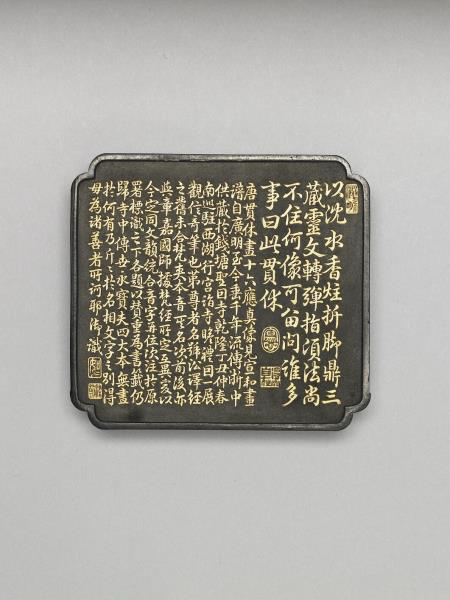 以沈水香炷折脚鼎三
藏靈文轉彈指頃法尚
不住何像可留問誰多
事曰此貫休
唐貫休畫十六應真像見宣和畫
譜自廣明至今垂千年流傳浙中
供藏於錢塘聖因寺乾隆丁丑仲春
南巡駐西湖行宮詣寺瞻禮因一展
觀信奇筆也第尊者名號沿譯經
之舊未合梵夾本音其名次前後亦
與章嘉國師據梵經所定互異爰以
今定同文韻統合音字並位次注於原
署標識之下各題以贊重為書籤仍
歸寺中傳世永寶夫四大本無畫
於何有乃斤斤於名相文字之別得
毋為諸善者所訶耶御識